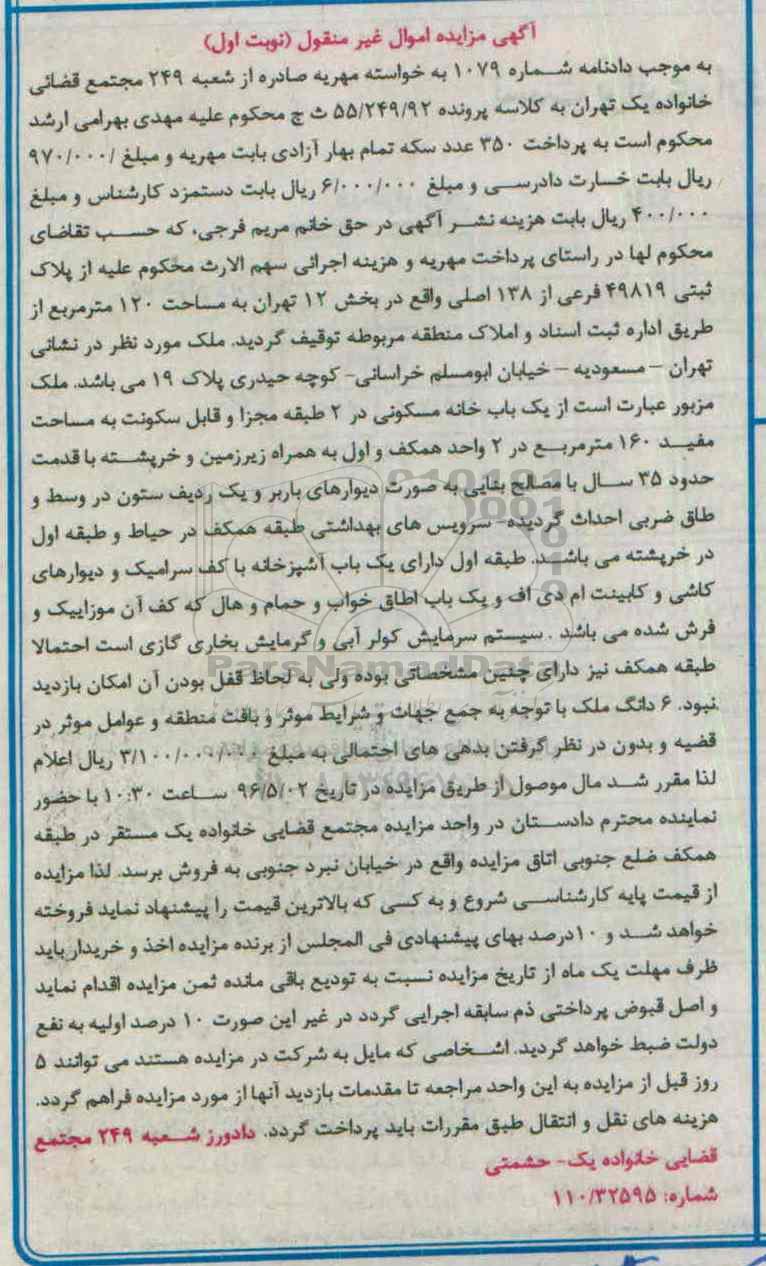 آگهی مزایده اموال غیر منقول (نوبت اول)
به موجب دادنامه شماره ۱۰۷۹ به خواسته مهریه صادره از شعبه ۲۴۹ مجتمع قضائی
خانواده یک تهران به کلاسه پرونده ۵۵/۲۴۹/۹۲ ث ج محکوم علیه مهدی بهرامی ارشد
محکوم است به پرداخت ۳۵۰ عدد سکه تمام بهار آزادی بابت مهریه و مبلغ ۹۷۰/۰۰۰/
ریال بابت خسارت دادرسی و مبلغ ۶/۰۰۰/۰۰۰ ریال بابت دستمزد کارشناس و مبلغ
۴۰۰/۰۰۰ ریال بابت هزینه نشر آگهی در حق خانم مریم فرجی، که حسب تقاضای
محکوم لها در راستای پرداخت مهریه و هزینه اجرائی سهم الارث محکوم علیه از پلاک
ثبتی ۴۹۸۱۹ فرعی از ۱۳۸ اصلی واقع در بخش ۱۲ تهران به مساحت ۱۲۰ مترمربع از
طریق اداره ثبت اسناد و املاک منطقه مربوطه توقیف گردید. ملک مورد نظر در نشانی
تهران – مسعودیه – خیابان ابومسلم خراسانی- کوچه حیدری پلاک ۱۹ می باشد. ملک
مزبور عبارت است از یک باب خانه مسکونی در ۲ طبقه مجزا و قابل سکونت به مساحت
مفید ۱۶۰ مترمربع در ۲ واحد همکف و اول به همراه زیرزمین و خرپشته با قدمت
حدود ۳۵ سال با مصالح بنایی به صورت دیوارهای باربر و یک ردیف ستون در وسط و
طاق ضربی احداث گردیده- سرویس های بهداشتی طبقه همکف در حیاط و طبقه اول
در خرپشته می باشند. طبقه اول دارای یک باب آشپزخانه با کف سرامیک و دیوارهای
کاشی و کابینت ام دی اف و یک باب اطاق خواب و حمام و هال که کف آن موزاییک و
فرش شده می باشد . سیستم سرمایش کولر آبی و گرمایش بخاری گازی است احتمالا
طبقه همکف نیز دارای چنین مشخصاتی بوده ولی به لحاظ قفل بودن آن امکان بازدید
نبود. ۶ دانگ ملک با توجه به جمع جهات و شرایط موثر و بافت منطقه و عوامل موثر در
قضیه و بدون در نظر گرفتن بدهی های احتمالی به مبلغ ۳/۱۰۰/۰۰۰/۰۰۰ ریال اعلام
لذا مقرر شد مال موصول از طریق مزایده در تاریخ ۹۶/۵/۰۲ ساعت ۱۰:۳۰ با حضور
نماینده محترم دادستان در واحد مزایده مجتمع قضایی خانواده یک مستقر در طبقه
همکف ضلع جنوبی اتاق مزایده واقع در خیابان نبرد جنوبی به فروش برسد. لذا مزایده
از قیمت پایه کارشناسی شروع و به کسی که بالاترین قیمت را پیشنهاد نماید فروخته
خواهد شد و ۱۰درصد بهای پیشنهادی فی المجلس از برنده مزایده اخذ و خریدار باید
ظرف مهلت یک ماه از تاریخ مزایده نسبت به تودیع باقی مانده ثمن مزایده اقدام نماید
و اصل قبوض پرداختی ذم سابقه اجرایی گردد در غیر این صورت ۱۰ درصد اولیه به نفع
دولت ضبط خواهد گردید. اشخاصی که مایل به شرکت در مزایده هستند می توانند ۵
روز قبل از مزایده به این واحد مراجعه تا مقدمات بازدید آنها از مورد مزایده فراهم گردد.
هزینه های نقل و انتقال طبق مقررات باید پرداخت گردد. دادورز شعبه ۲۴۹ مجتمع
قضایی خانواده یک- حشمتی
شماره: ۱۱۰/۳۲۵۹۵
ParsNamadData